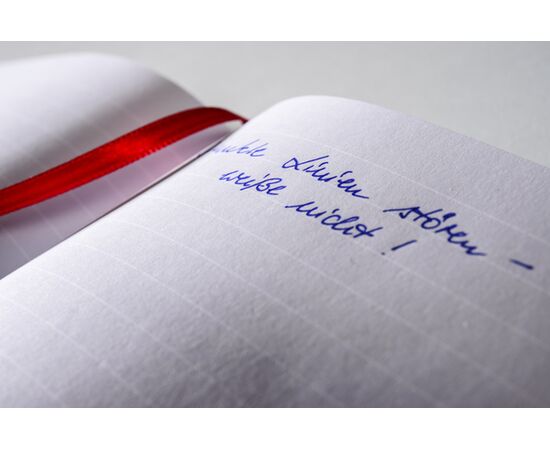 Linien stören –
weiße nicht!